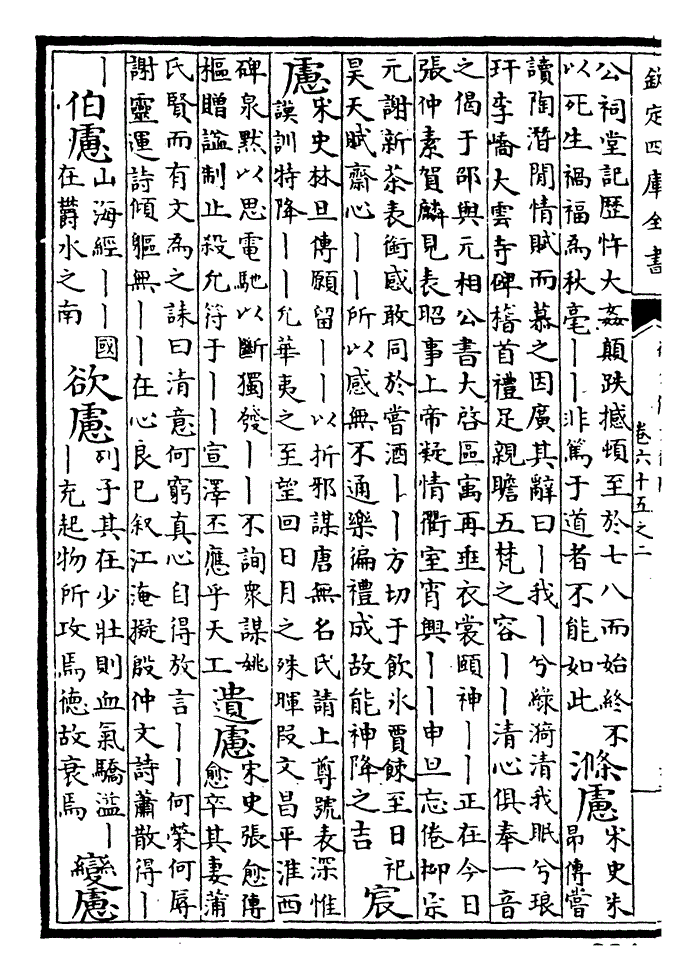 欽定四庫全書
卷六十五之二
公祠堂記歴忤大姦顛跌撼頓至於七八而始終不
以死生禍福為秋毫丨丨非篤于道者不能如此
滌慮
宋史朱
昻傳嘗
讀陶潛閒情賦而慕之因廣其辭曰丨我丨兮綠漪清我眠兮琅
玕李嶠大雲寺碑稽首禮足親瞻五梵之容丨丨清心俱奉一音
之偈于邵與元相公書大啓區寓再垂衣裳頤神丨丨正在今日
張仲素賀麟見表昭事上帝凝情衢室宵興丨丨申旦忘倦栁宗
元謝新茶表銜感敢同於嘗酒丨丨方切于飲氷賈餗至日祀
昊天賦齋心丨丨所以感無不通樂徧禮成故能神降之吉
宸
慮
宋史林旦傳願留丨丨以折邪謀唐無名氏請上尊號表深惟
謨訓特降丨丨允華夷之至望回日月之殊暉叚文昌平淮西
碑泉默以思電馳以斷獨發丨丨不詢衆謀姚
樞贈謚制止殺允符于丨丨宣澤丕應乎天工
遺慮
宋史張愈傳
愈卒其妻蒲
氏賢而有文為之誄曰清意何窮真心自得放言丨丨何榮何辱
謝靈運詩傾軀無丨丨在心良已叙江淹擬殷仲文詩蕭散得丨
丨
伯慮
山海經丨丨國
在欝水之南
欲慮
列子其在少壯則血氣驕溢丨
丨充起物所攻焉德故衰焉
變慮